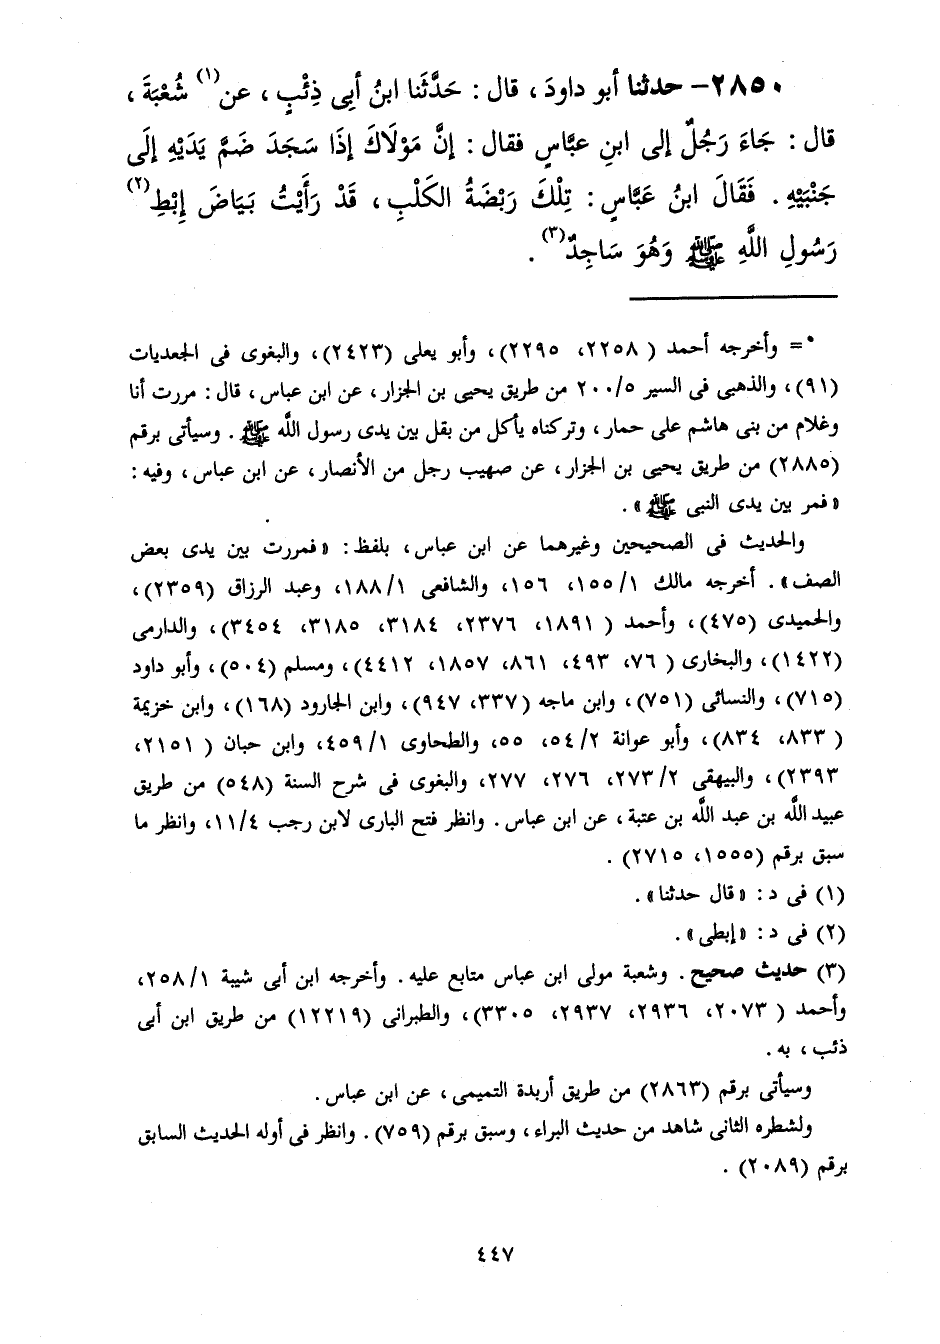 ٢٨٥٠- حدثنا أبو داودَ، قال: حَدَّثَنا ابنُ أبِى ذِئْبٍ، عن(١) شُعْبَةَ،
قال: جَاءَ رَجُلٌ إلى ابنِ عبَّاسٍ فقال: إنَّ مَوْلَاكَ إذَا سَجَدَ ضَمَّ يَدَيْهِ إلَى
جَنْبَيْهِ. فَقَالَ ابنُ عَبَّاسٍ: تِلْكَ رَبْضَةُ الكَلْبِ، قَدْ رَأَيْتُ بَيَاضَ إبْطِ(٢)
رَسُولِ اللَّهِ ﷺ وَهُوَ سَاجِدٌ(٣).
= وأخرجه أحمد (٢٢٥٨، ٢٢٩٥)، وأبو يعلى (٢٤٢٣)، والبغوى فى الجعديات
(٩١)، والذهبى فى السير ٢٠٠/٥ من طريق يحيى بن الجزار، عن ابن عباس، قال: مررت أنا
وغلام من بنى هاشم على حمار، وتركناه يأكل من بقل بين يدى رسول الله ﷺ. وسيأتى برقم
(٢٨٨٥) من طريق يحيى بن الجزار، عن صهيب رجل من الأنصار، عن ابن عباس، وفيه:
«فمر بين يدى النبى ﷺ».
والحديث فى الصحيحين وغيرهما عن ابن عباس، بلفظ: «فمررت بين يدى بعض
الصف». أخرجه مالك ١٥٥/١، ١٥٦، والشافعى ١٨٨/١، وعبد الرزاق (٢٣٥٩)،
والحميدى (٤٧٥)، وأحمد (١٨٩١، ٢٣٧٦، ٣١٨٤، ٣١٨٥، ٣٤٥٤)، والدارمى
(١٤٢٢)، والبخارى (٧٦، ٤٩٣، ٨٦١، ١٨٥٧، ٤٤١٢)، ومسلم (٥٠٤)، وأبو داود
(٧١٥)، والنسائى (٧٥١)، وابن ماجه (٣٣٧، ٩٤٧)، وابن الجارود (١٦٨)، وابن خزيمة
(٨٣٣، ٨٣٤)، وأبو عوانة ٥٤/٢، ٥٥، والطحاوى ٤٥٩/١، وابن حبان (٢١٥١،
٢٣٩٣)، والبيهقى ٢٧٣/٢، ٢٧٦، ٢٧٧، والبغوى فى شرح السنة (٥٤٨) من طريق
عبيد اللَّه بن عبد اللَّه بن عتبة، عن ابن عباس. وانظر فتح البارى لابن رجب ١١/٤، وانظر ما
سبق برقم (١٥٥٥، ٢٧١٥).
(١) فى د: «قال حدثنا».
(٢) فى د: «إبطى».
(٣) حديث صحيح. وشعبة مولى ابن عباس متابع عليه. وأخرجه ابن أبى شيبة ٢٥٨/١،
وأحمد (٢٠٧٣، ٢٩٣٦، ٢٩٣٧، ٣٣٠٥)، والطبرانى (١٢٢١٩) من طريق ابن أبى
ذئب، به.
وسيأتى برقم (٢٨٦٣) من طريق أربدة التميمى، عن ابن عباس.
ولشطره الثانى شاهد من حديث البراء، وسبق برقم (٧٥٩). وانظر فى أوله الحديث السابق
برقم (٢٠٨٩).
٤٤٧